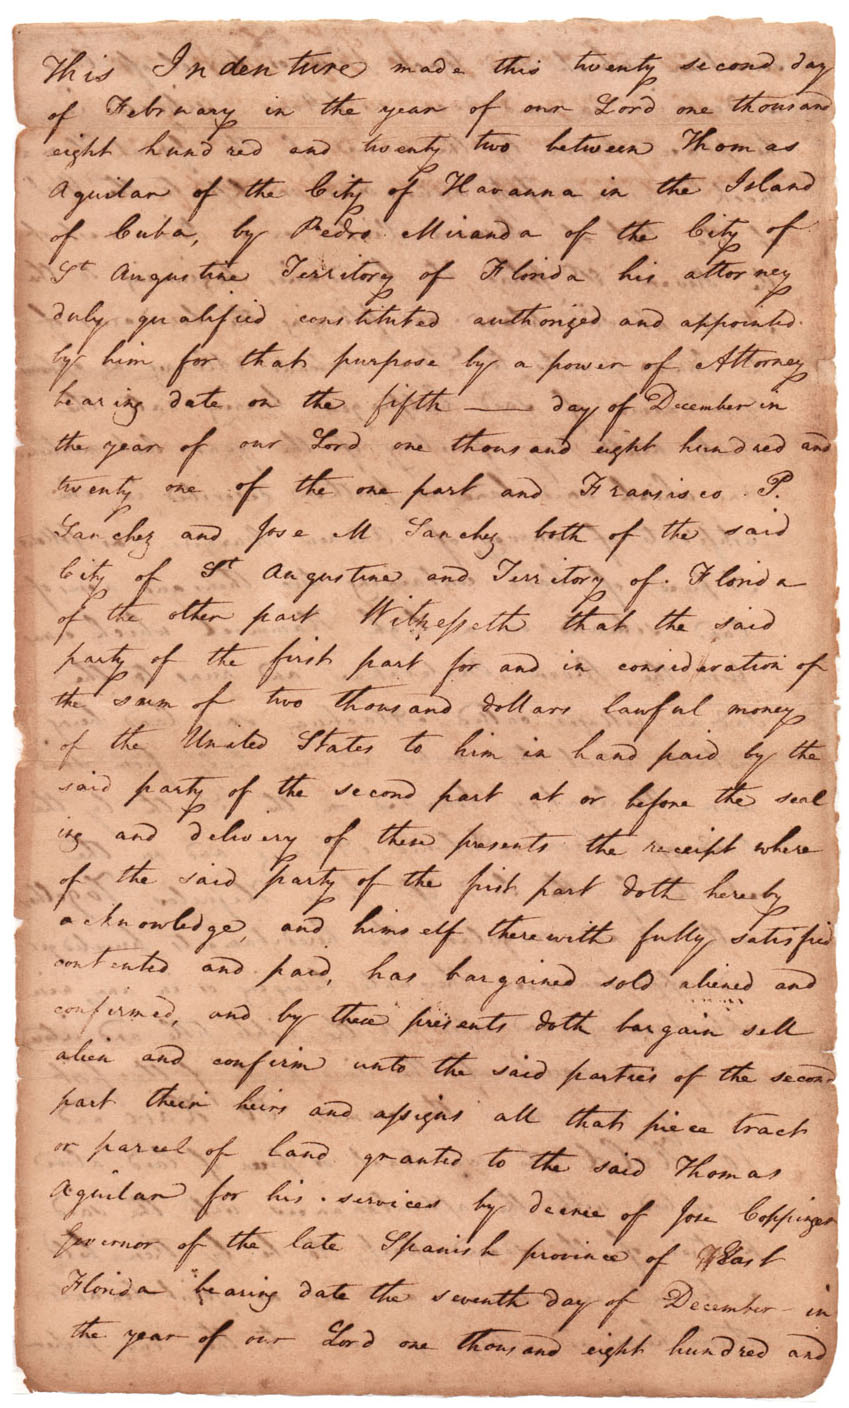 This Indenture made this twenty second day
of February in the year of our Lord one thousand
eight hundred and twenty two between Thomas
Aguilar of the City of Havanna in the Island
of Cuba, by Pedro Miranda of the City of
St Augustine Territory of Florida his attorney
duly qualified constituted authorized and appointed
by him for that purpose by a power of Attorney
bearing date on the fifth — day of December in
the year of our Lord one thousand eight hundred and
twenty one of the one part and Fransisco P.
Sanchez and Jose M Sanchez both of the said
City of St Augustine and Territory of Florida
of the other part Witnesseth that the said
party of the first part for and in consideration of
the sum of two thousand dollars lawful money
of the United States to him in hand paid by the
said party of the second part at or before the seal
ing and delivery of these presents the receipt where
of the said party of the first part doth hereby
acknowledge, and himself therewith fully satisfied
contented and paid, has bargained sold aliened and
confirmed, and by these presents doth bargain sell
alien and confirm unto the said parties of the second
part their heirs and assigns all that piece tract
or parcel of land granted to the said Thomas
Aguilar for his services by decree of Jose Coppinger
Governor of the late Spanish province of East
Florida bearing date the seventh day of December in
the year of our Lord one thousand eight hundred and